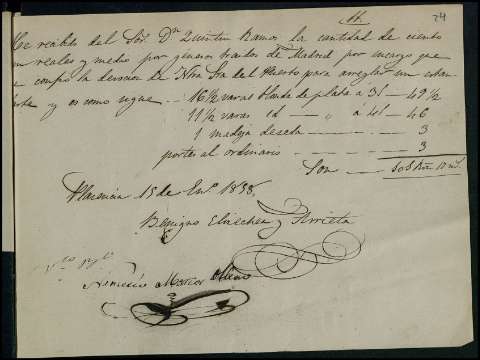 11. 24
He recibido del Sor. Dn. Quintin Ramos la cantidad de ciento
un reales y medio por generos traidos de Madrid por encargo que
compró la devocion de Ntra Sra del Puerto para arreglar un estan-
darte y es como sigue .. 16 1/2 varas blonda de plata a 3 rl — 49 1/2
11 1/2 varas id — „ a 4 rl — 46
1 madeja de seda — 3
portes al ordinario — 3
Son —
Plasencia 15 de Eno. 1858,
Benigno y Arrieta
Vto
Nemesio